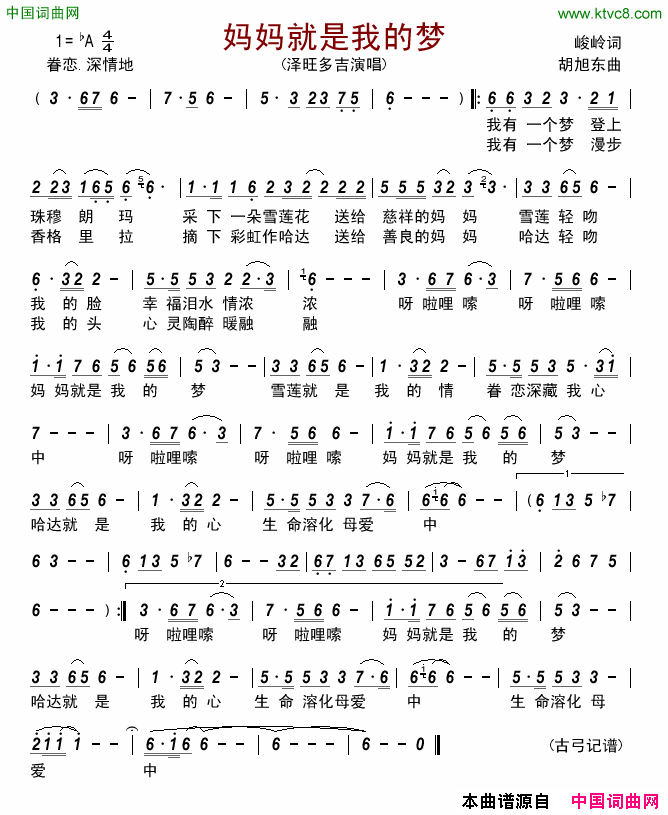 中国词曲网
www.ktvc8.com
妈妈就是我的梦
1=♭A 4/4
眷恋.深情地
(泽旺多吉演唱)
峻岭词
胡旭东曲
( 3· 67 6 - | 7· 5 6 - | 5· 3 23 75 | 6· - - - ) ‖: 6 6 3 2 3· 21 |
我有一个梦 登上
我有一个梦 漫步
2 23 165 6 5 6· | 1·1 16 232 222 | 555 532 3 2 3· | 33 65 6 - |
珠穆 朗 玛 采 下 一朵雪莲花 送给 慈祥的妈 妈 雪莲 轻 吻
香格 里 拉 摘 下 彩虹作哈达 送给 善良的妈 妈 哈达 轻 吻
6· 32 2 - | 5·5 53 2 2·3 | 1 6 - - - | 3· 67 6·3 | 7· 56 6 - |
我 的 脸 幸 福泪水 情浓 浓 呀 啦哩 嗦 呀 啦哩 嗦
我 的 头 心 灵陶醉 暖融 融
1·1 76 56 56 | 5 3 - - | 33 65 6 - | 1· 32 2 - | 5·5 53 5·31 |
妈 妈就是 我 的 梦 雪莲就 是 我 的 情 眷 恋深藏 我 心
7 - - - | 3· 67 6·3 | 7· 56 6 - | 1·1 76 56 556 | 5 3 - - |
中 呀 啦哩嗦 呀 啦哩 嗦 妈 妈就是 我 的 梦
33 65 6 - | 1· 32 2 - | 5·5 53 3 7·6 | 6 1 6 6 - | 1 (6 135 ♭7 |
哈达就 是 我 的 心 生 命溶化 母爱 中
6 3 - - | 6 135 ♭7 | 6 - - 32 | 67 13 65 52 | 3 - 67 13 | 2 6 7 5 |
6 - - ) :‖ 2 3· 67 6·3 | 7· 566 - | 1·1 76 56 556 | 5 3 - - |
呀 啦哩嗦 呀 啦哩嗦 妈 妈就是 我 的 梦
33 65 6 - | 1· 32 2 - | 5·5 53 3 7·6 | 6 1 6 6 - | 5·5 53 5 3 |
哈达就 是 我 的 心 生 命 溶化母爱 中 生 命 溶化 母
2 1 1 1 - - | 6·1 6 6 - - | 6 - - 0 ‖
爱 中
(古弓记谱)
本曲谱源自 中国词曲网